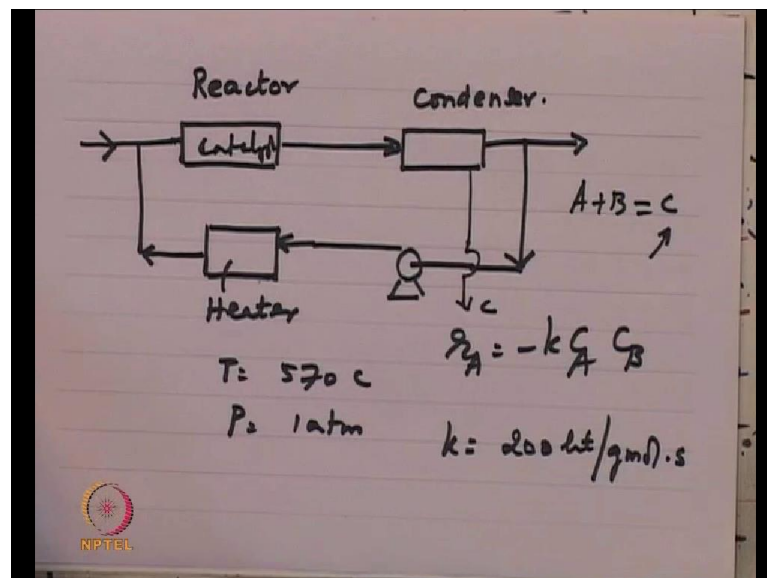 Reactor
Condenser.
Catalyst
A+B = C
Heater
C
r_A = -k C_A C_B
T= 570 C
P= 1 atm
k= 200 lit/gmol.s
NPTEL